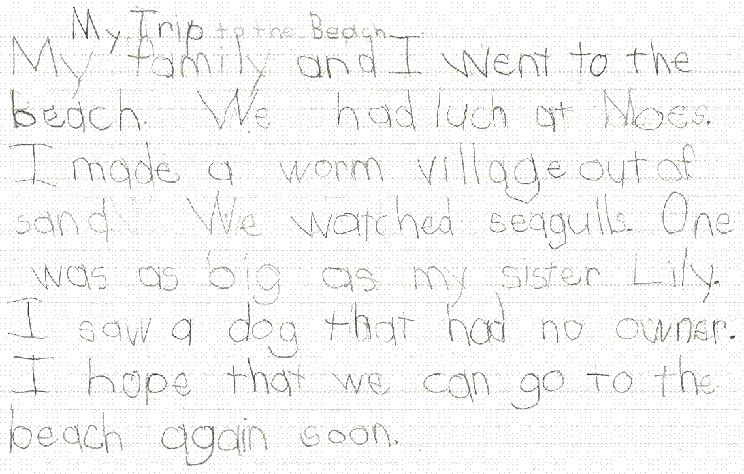 My Trip to the Beach
My family and I went to the
beach. We had luch at Moes.
I made a worm village out of
sand. We watched seagulls. One
was as big as my sister Lily.
I saw a dog that had no owner.
I hope that we can go to the
beach again soon.